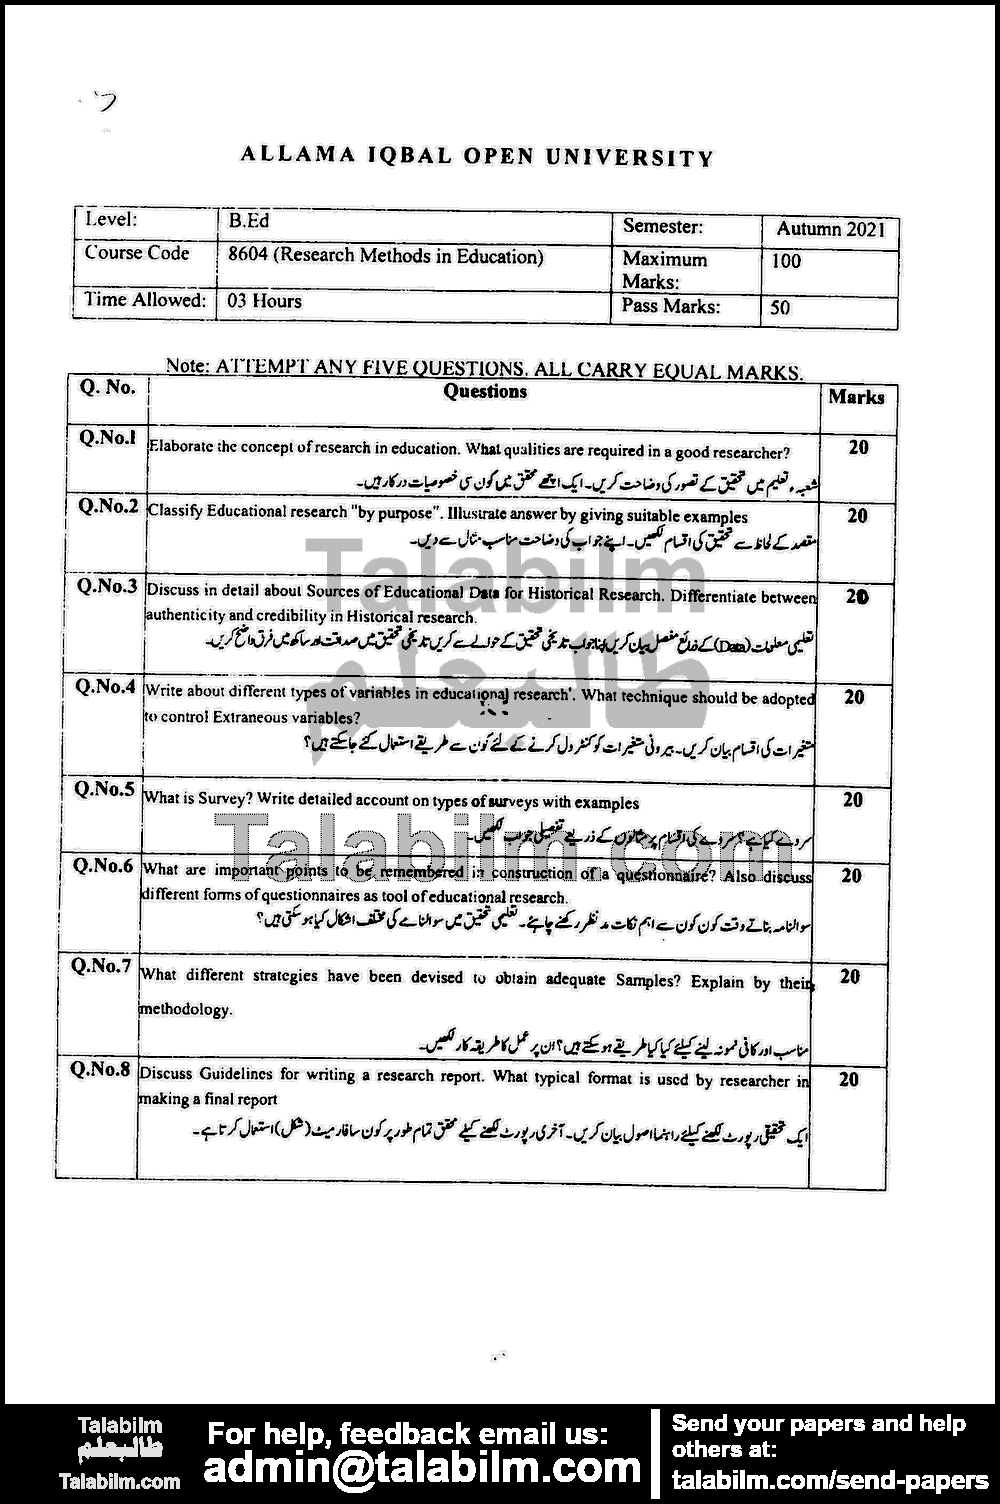 ALLAMA IQBAL OPEN UNIVERSITY
Level: B.Ed Semester: Autumn 2021
Course Code 8604 (Research Methods in Education) Maximum Marks: 100
Time Allowed: 03 Hours Pass Marks: 50
Note: ATTEMPT ANY FIVE QUESTIONS. ALL CARRY EQUAL MARKS.
Q. No. Questions Marks
Q.No.1 Elaborate the concept of research in education. What qualities are required in a good researcher? 20
شعبہ ء تعلیم میں تحقیق کے تصور کی وضاحت کریں۔ ایک اچھے محقق میں کون سی خصوصیات درکار ہیں۔
Q.No.2 Classify Educational research "by purpose". Illustrate answer by giving suitable examples 20
مقصد کے لحاظ سے تحقیق کی اقسام لکھیں۔ اپنے جواب کی وضاحت مناسب مثال سے دیں۔
Talabilm
Q.No.3 Discuss in detail about Sources of Educational Data for Historical Research. Differentiate between 20
authenticity and credibility in Historical research.
تعلیمی معلومات (Data) کے ذرائع مفصل بیان کریں اپنا جواب تاریخی تحقیق کے حوالے سے کریں تاریخی تحقیق میں صداقت اور ساکھ میں فرق واضح کریں۔
طالبعلم
Q.No.4 Write about different types of variables in educational research'. What technique should be adopted 20
to control Extraneous variables?
متغیرات کی اقسام بیان کریں۔ بیرونی متغیرات کو کنٹرول کرنے کے لئے کون سے طریقے استعمال کئے جا سکتے ہیں؟
Q.No.5 What is Survey? Write detailed account on types of surveys with examples 20
سروے کیا ہے؟ سروے کی اقسام پر مثالوں کے ذریعے تفصیلی جواب لکھیں۔
Talabilm.com
Q.No.6 What are important points to be remembered in construction of a questionnaire? Also discuss 20
different forms of questionnaires as tool of educational research.
سوالنامہ بناتے وقت کون کون سے اہم نکات مد نظر رکھنے چاہئے۔ تعلیمی تحقیق میں سوالنامے کی مختلف اشکال کیا ہو سکتی ہیں؟
Q.No.7 What different strategies have been devised to obtain adequate Samples? Explain by their 20
methodology.
مناسب اور کافی نمونہ لینے کیلئے کیا کیا طریقے ہو سکتے ہیں؟ ان پر عمل کا طریقہ کار لکھیں۔
Q.No.8 Discuss Guidelines for writing a research report. What typical format is used by researcher in 20
making a final report
ایک تحقیقی رپورٹ لکھنے کیلئے راہنما اصول بیان کریں۔ آخری رپورٹ لکھنے کیلئے محقق تمام طور پر کون سا فارمیٹ (شکل) استعمال کرتا ہے۔
Talabilm
طالبعلم
Talabilm.com
For help, feedback email us:
admin@talabilm.com
Send your papers and help
others at:
talabilm.com/send-papers